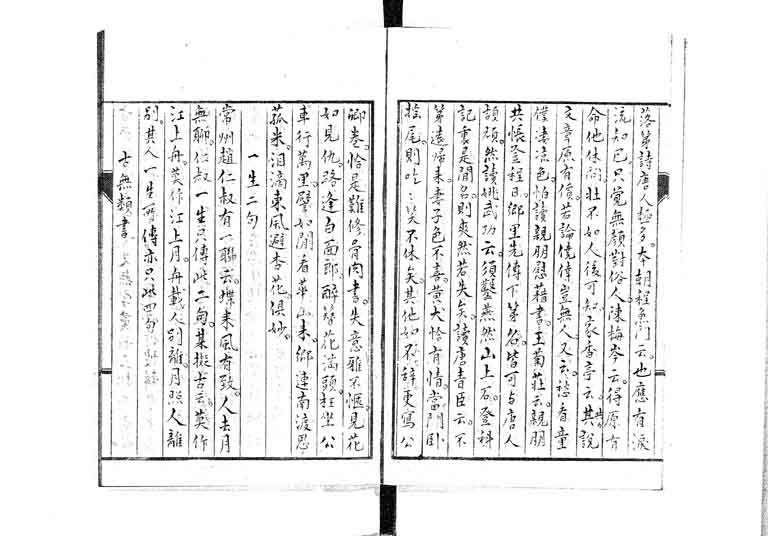 落第詩唐人極多本朝程魚門云也應有淚
流知已只覺無顏對俗人陳梅岑云得原有
命他休問壯不如人後可知家香亭云共說
文章原有價若論僥倖豈無人又云愁看童
僕淒涼色怕讀親朋慰藉書王菊莊云親朋
共悵登程日鄉里先傳下第名皆可與唐人
頡頏然讀姚武功云須鑿燕然山上石登科
記裏是閒名則爽然若失矣讀唐青臣云不
第遠歸來妻子色不喜黃犬恰有情當門卧
搖尾則吃吃笑不休矣其他如不辭更寫公
卿卷恰是難修骨肉書失意雅不愜見花
如見仇路逢白面郎醉簪花滿頭枉坐公
車行萬里譬如閒看華山來鄉連南渡思
菰米淚滴東風避杏花俱妙
一生二句
常州趙仁叔有一聯云蝶來風有致人去月
無聊仁叔一生只傳此二句某擬古云莫作
江上舟莫作江上月舟載人別離月照人離
別其人一生所傳亦只此四句
古無類書